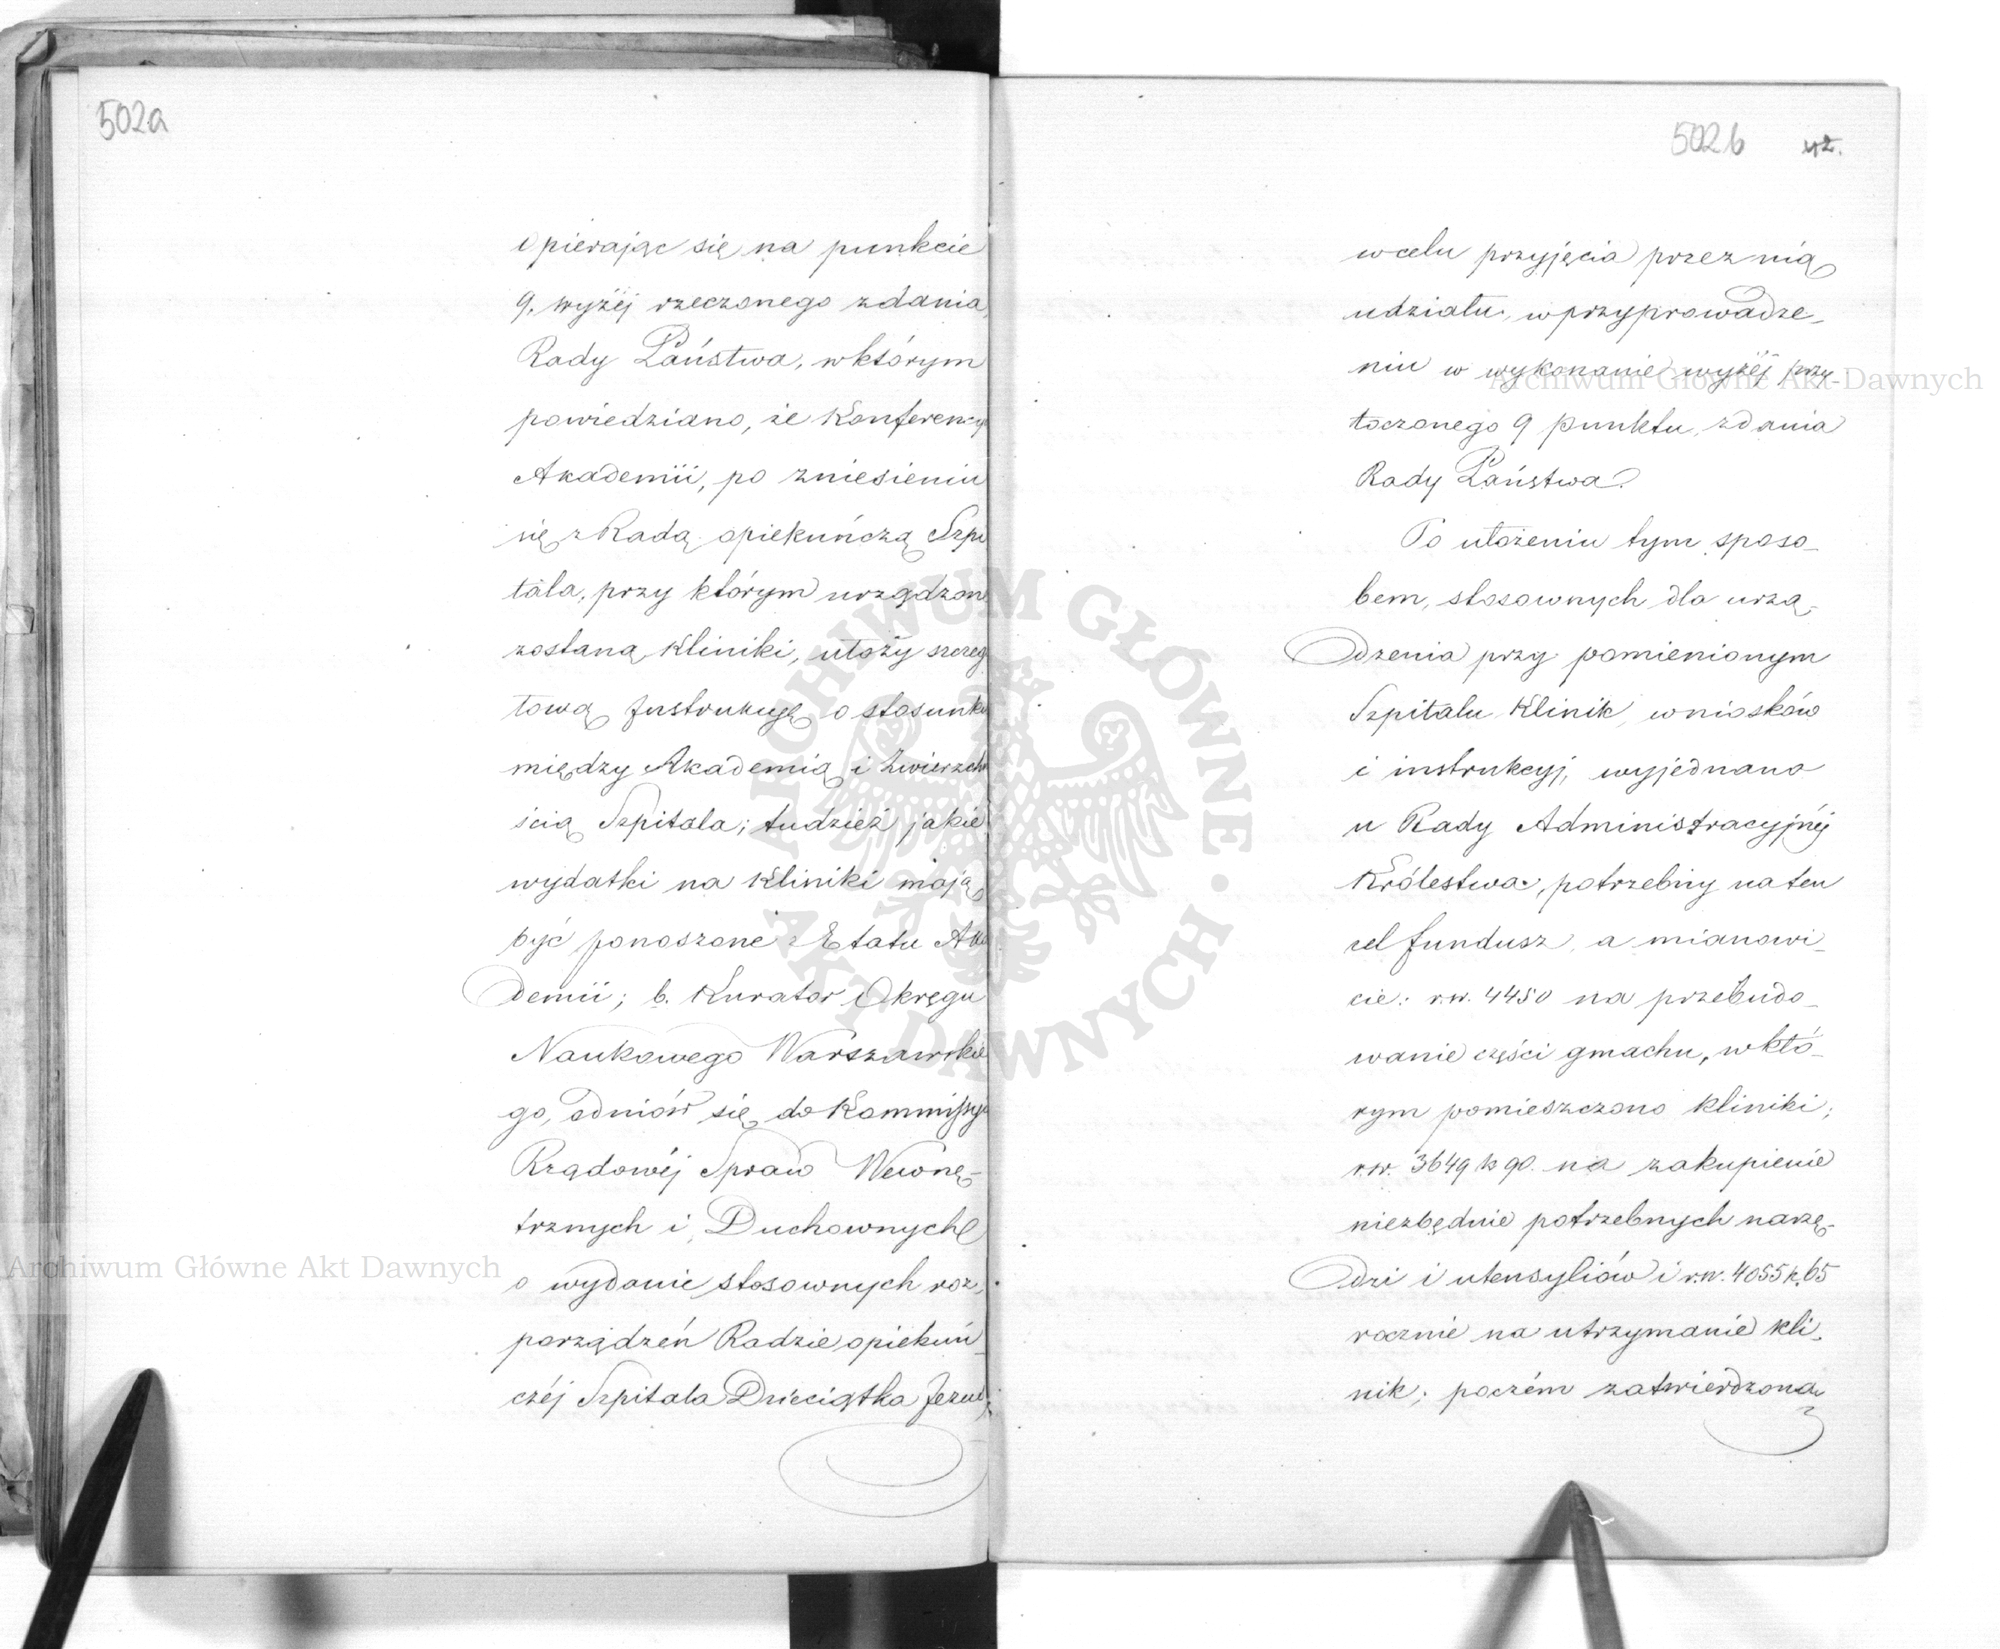 502a
Opierając się na punkcie
9. wyżéj rzeczonego zdania
Rady Państwa, w którym
powiedziano, że Konferency
Akademii, po zniesieniu
się z Radą opiekuńczą Szpi
tala, przy którym urządzone
zostaną Kliniki, ułoży szczeg
łową Instrukcyę o stosunku
między Akademią i Zwierzchn
ścią Szpitala; tudzież jakie
wydatki na Kliniki mają
być ponoszone z Etatu Aka
demii; b. Kurator Okręgu
Naukowego Warszawskie
go, odniósł się do Kommissyi
Rządowéj Spraw Wewnę-
trznych i Duchownych
o wydanie stosownych roz-
porządzeń Radzie opiekuń-
czéj Szpitala Dzieciątka Jezus,
502b
42.
w celu przyjęcia przez nią
udziału, w przyprowadze-
niu w wykonanie wyżéj przy
toczonego 9 punktu, zdania
Rady Państwa.
Po ułożeniu tym sposo-
bem, stosownych dla urzą-
dzenia przy pomienionym
Szpitalu Klinik, wniosków
i instrukcyj, wyjednano
u Rady Administracyjnéj
Królestwa, potrzebny na ten
cel fundusz, a mianowi-
cie: r.sr. 4450 na przebudo-
wanie części gmachu, w któ-
rym pomieszczono kliniki;
r.sr. 3649 k 90. na zakupienie
niezbędnie potrzebnych narzę-
dzi i utensyliów i r.sr. 4055 k. 65
rocznie na utrzymanie kli-
nik; poczém zatwierdzona
Archiwum Główne Akt Dawnych
Archiwum Główne Akt Dawnych
ARCHIWUM GŁÓWNE AKT DAWNYCH